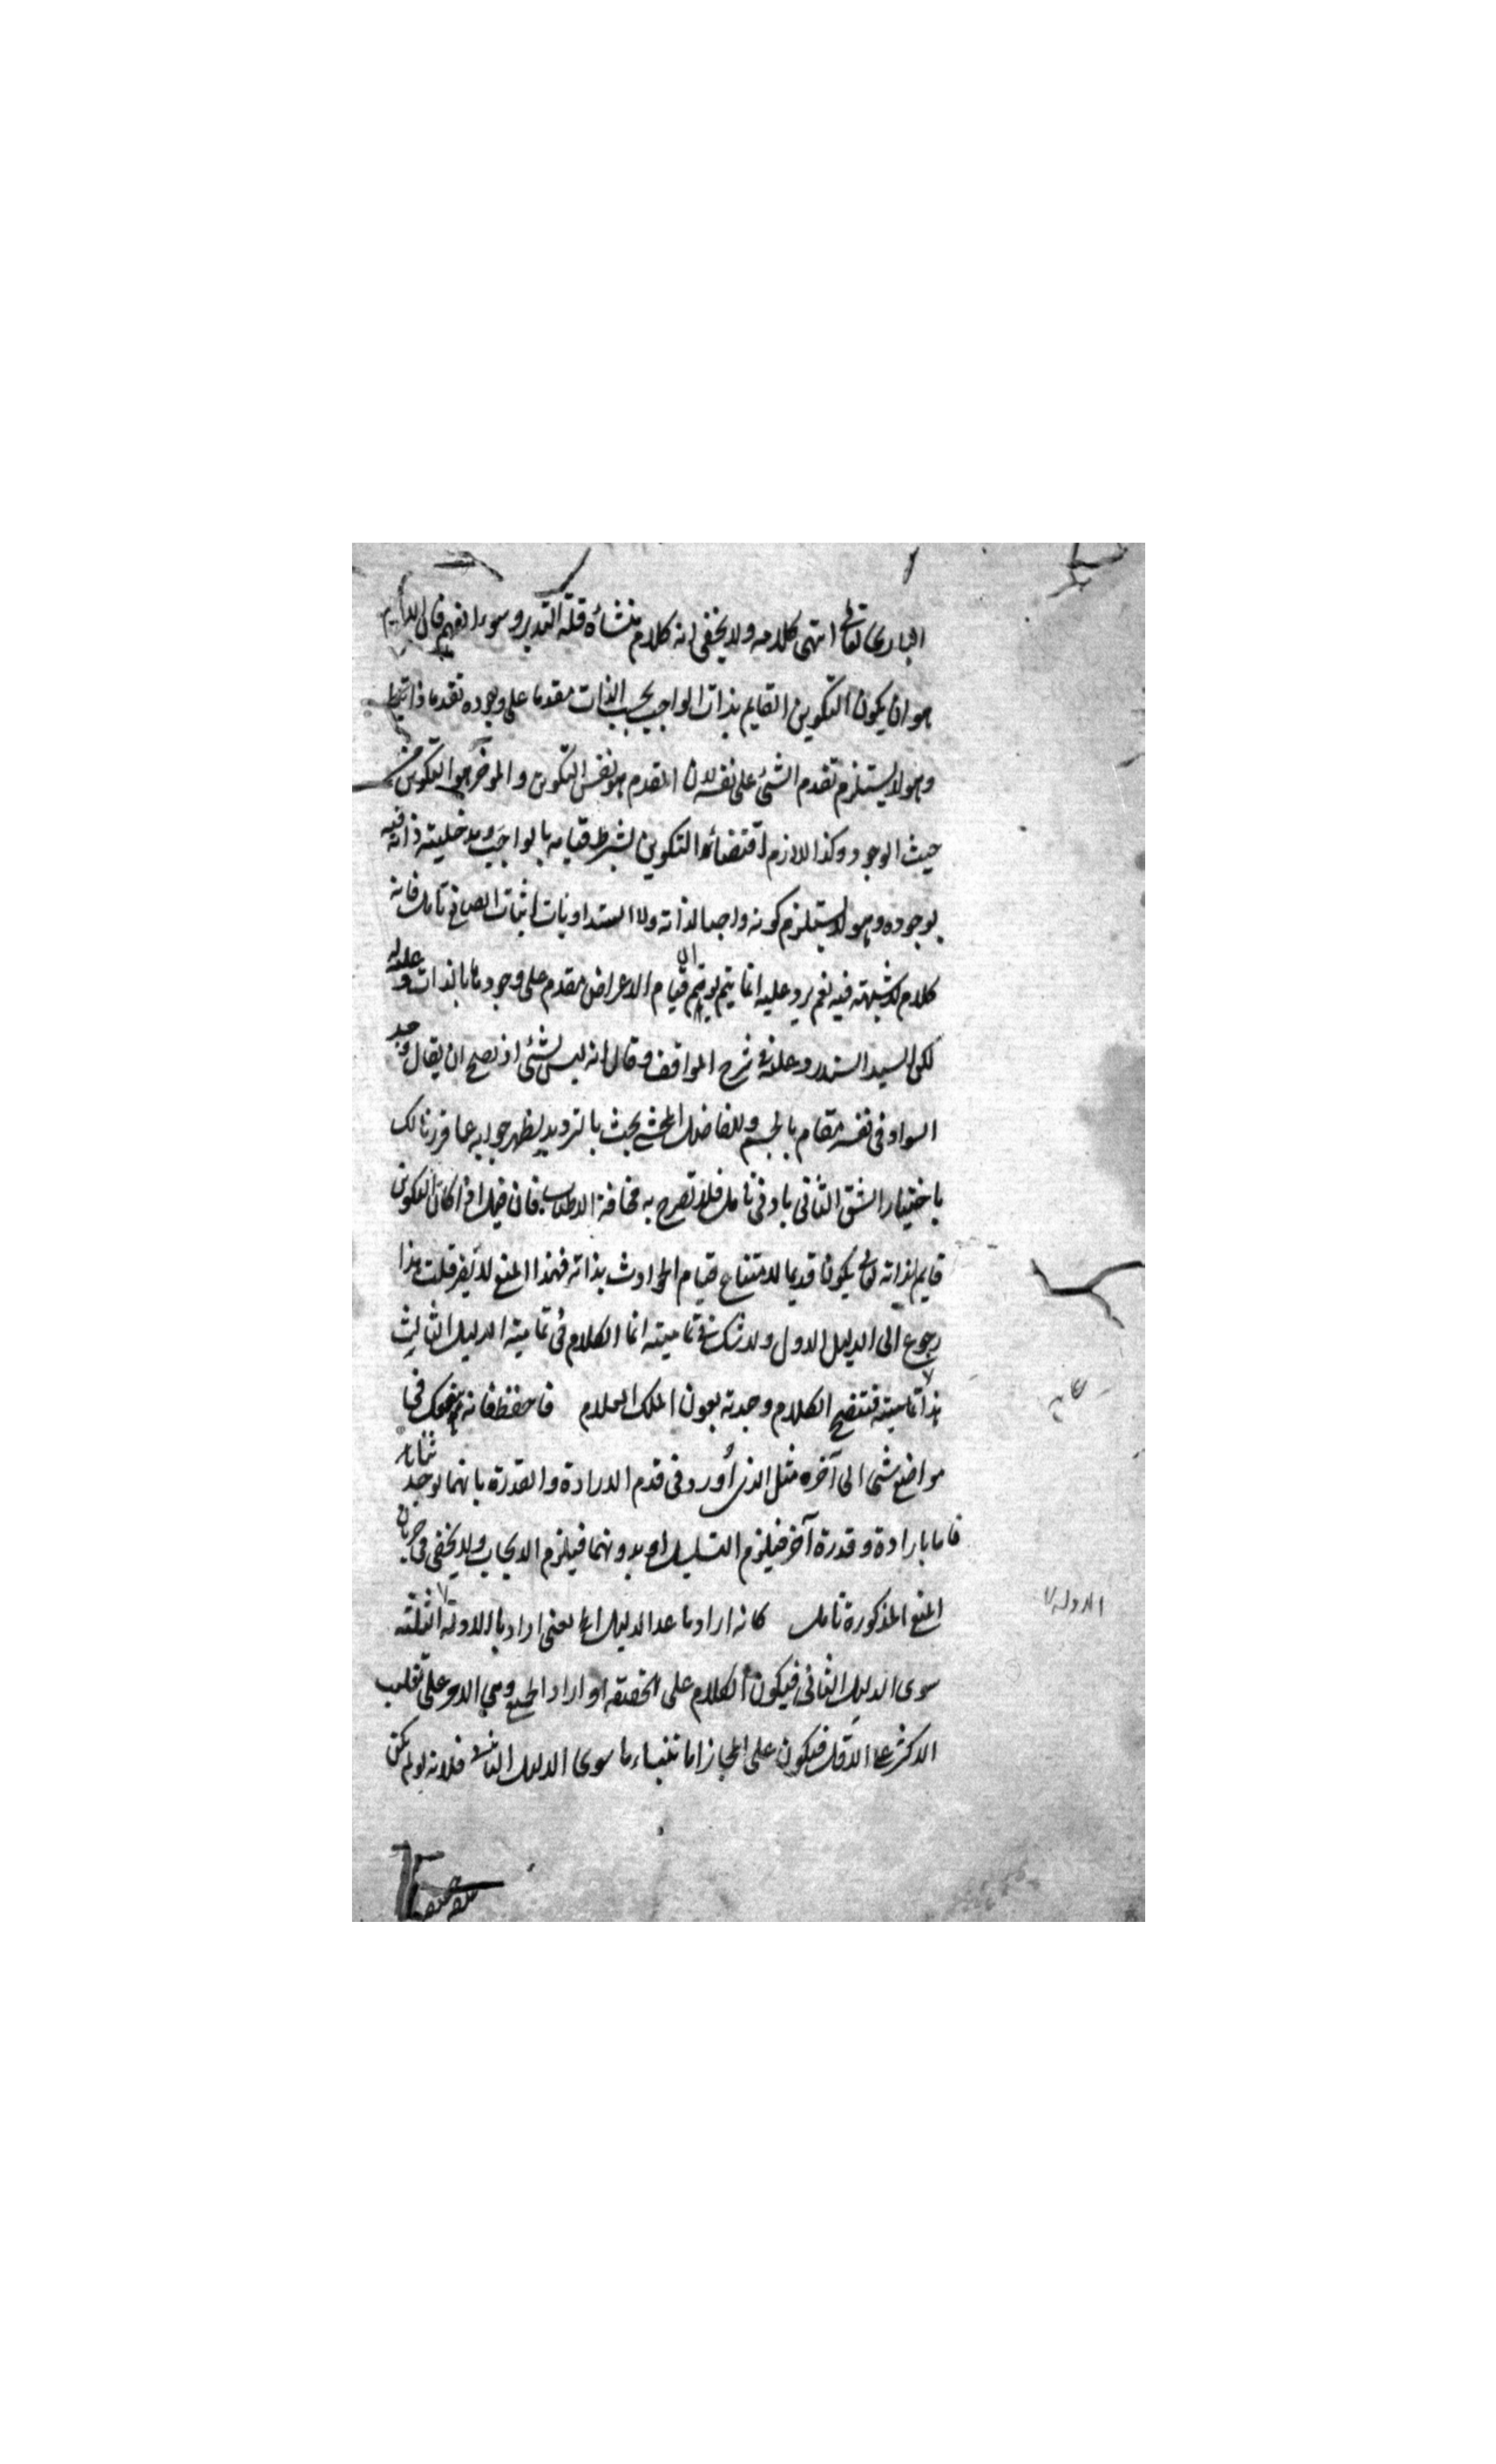 البارى تعالى انتهى كلامه ولا يخفى انه كلام منشاؤه قلة التدبر وسوء الفهم فان اللازم
هو ان يكون التكوين القايم بذات الواجب بحسب الذات مقدما على وجوده تقدما ذاتيا
وهو لا يستلزم تقدم الشئ على نفسه لان المقدم هو نفس التكوين والموخر هو التكوين من
حيث الوجود وكذا اللازم اقتضاء التكوين بشرط قيامه بالواجب ومدخلية ذاته فيه
لوجوده وهو لا يستلزم كونه واجبا لذاته ولا انسداد باب اثبات الصانع تامل فانه
كلام لا شبهة فيه نعم يرد عليه انما يتم لو تم ان قيام الاعراض مقدم على وجودها بالذات وعليه
لكن السيد السند رد عليه في شرح المواقف وقال انه ليس بشئ اذ يصح ان يقال وجد
السواد في نفسه فقام بالجسم وللفاضل المحشي بحث بالترديد يظهر جوابه عما قررنا لك
باختيار الشق الثانى بادنى تامل فلا نصرح به مخافة الاطناب فان قيل اذا كان التكوين
قايم لذاته تعالى يكون قديما لامتناع قيام الحوادث بذاته فهذا المنع لا يضر قلت هذا
رجوع الى الدليل الاول ولا شك في تماميته انما الكلام في تمامية الدليل الثالث
هذا تماميته فتنقح الكلام وجدته بعون الملك العلام فاحفظ فانه ينفعك في
مواضع شتى الى آخره مثل الذى أورد في قدم الارادة والقدرة بانهما لو حدثتا
فاما بارادة وقدرة آخر فيلزم التسلسل او بدونهما فيلزم الايجاب ولا يخفى جريان
المنع المذكورة تامل كانه اراد ما عدا الدليل الخ يعنى اراد بالادلة الثلثة
سوى الدليل الثانى فيكون الكلام على الحقيقة او اراد الجميع وهي الادلة على تغليب
الاكثر على الاقل فيكون على المجاز اما تبناء ما سوى الدليل الثانى فلانه لو لم يكن
الادلة